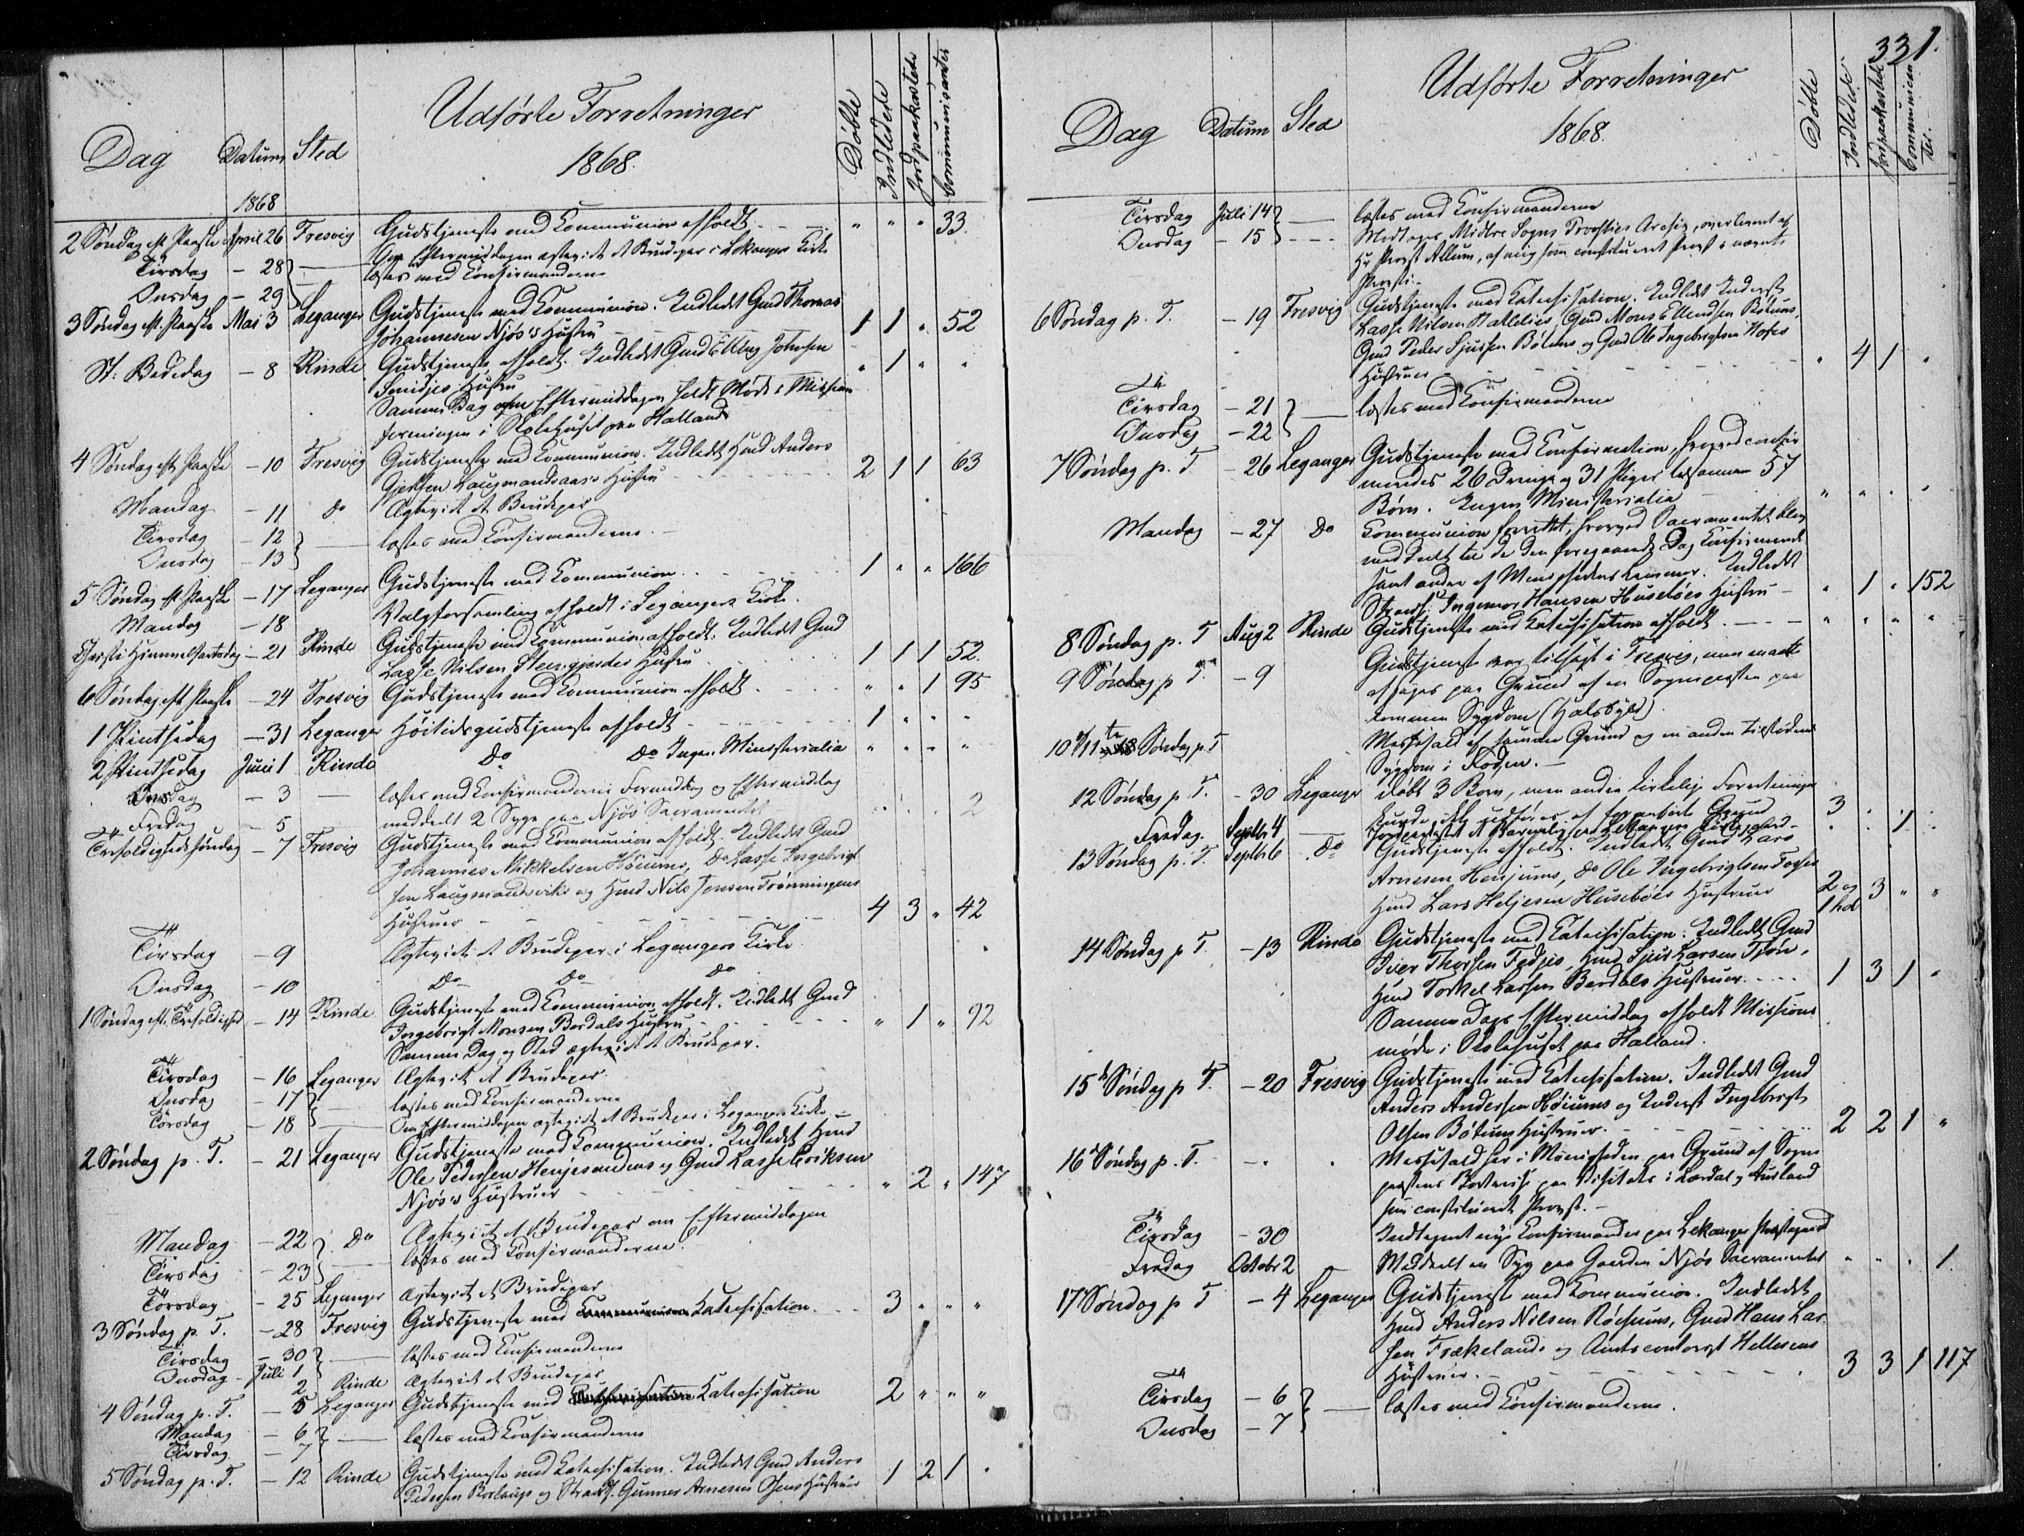 Udførte Forretninger
Dag Datum Sted 1868. Døbte Indledede Jordpaakastede Communicanter
1868
2 Søndag eft. Paaske April 26 Fresvig Gudstjeneste med Communion afholdt. " " " 33.
Om Eftermiddagen ægteviet et Brudepar i Lekanger Kirke
Tirsdag - 28 læstes med Confirmanderne
Onsdag - 29
3 Søndag eft. Paaske Mai 3 Leganger Gudstjeneste med Communion. Indledt Gmd Thomas
Johannesen Njøs's Hustru 1 1 " 52
St: Bededag - 8 Rinde Gudstjeneste afholdt. Indledt Gmd Elling Johnsen
Smidjes Hustru " 1 " "
Samme Dag om Eftermiddagen holdt Møde i Missions
foreningen i Skolehuset paa Halland
4 Søndag eft. Paaske - 10 Fresvig Gudstjeneste med Communion. Indledt Hmd Anders
Gjertsen Laugmandsaas's Hustru 2 1 1 63
Mandag - 11 Do Ægteviet et Brudepar
Tirsdag - 12 læstes med Confirmanderne
Onsdag - 13
5 Søndag eft. Paaske - 17 Leganger Gudstjeneste med Communion 1 " " 166
Mandag - 18 Valgforsamling afholdt i Leganger Kirke.
Christi Himmelfartsdag - 21 Rinde Gudstjeneste med Communion afholdt. Indledt Gmd
Lasse Nilsen Steengjerdes Hustru 1 1 1 52.
6 Søndag eft. Paaske - 24 Fresvig Gudstjeneste med Communion afholdt " " 1 95
1 Pintsedag - 31 Leganger Høitidsgudstjeneste afholdt 1 " " "
2 Pintsedag Juni 1 Rinde Do Do Ingen Ministerialia " " " "
Onsdag - 3 læstes med Confirmanderne Formiddag og Eftermiddag
Fredag - 5 meddelt 2 Syge paa Njøs Sacramentet 2
Trefoldighedssøndag - 7 Fresvig Gudstjeneste med Communion afholdt. Indledt Gmd
Johannes Mikkelsen Høiums, Do Lasse Ingebrigt
sen Laugmandsviks og Hmd Nils Jensen Trønningens
Hustruer 4 3 " 42
Tirsdag - 9 Ægteviet et Brudepar i Leganger Kirke
Onsdag - 10 Do Do Do
1 Søndag eft. Trefoldighed - 14 Rinde Gudstjeneste med Communion afholdt. Indledt Gmd
Ingebrigt Monsen Berdals Hustru " 1 " 92
Samme Dag og Sted ægteviet et Brudepar.
Tirsdag - 16 Leganger Ægteviet et Brudepar.
Onsdag - 17 læstes med Confirmanderne
Torsdag - 18 Om Eftermiddagen ægteviet et Brudepar i Leganger Kirke
2 Søndag p. T. - 21 Leganger Gudstjeneste med Communion. Indledt Hmd
Ole Pedersen Henjesandens og Gmd Lasse Eriksen
Njøs's Hustruer " 2 " 147
Mandag - 22 Do Ægteviet et Brudepar om Eftermiddagen
Tirsdag - 23 læstes med Confirmanderne.
Torsdag - 25 Leganger Ægteviet et Brudepar
3 Søndag p. T. - 28 Fresvig Gudstjeneste med Communion Katechisation. 3 " " "
Tirsdag - 30 læstes med Confirmanderne
Onsdag - Juli 1
2 Rinde Ægteviet et Brudepar
4 Søndag p. T. - 5 Leganger Gudstjeneste med Katechisation 2 " " "
Mandag - 6 læstes med Confirmanderne
Tirsdag - 7
5 Søndag p. T. - 12 Rinde Gudstjeneste med Katechisation. Indledt Gmd Anders
Pedersen Borlaugs og Strands. Gunner Arnesens Hustruer 1 2 1 "
331.
Udførte Forretninger
Dag Datum Sted 1868. Døbte Indledede Jordpaakastede Communican
ter.
Tirsdag Juli 14 læstes med Confirmanderne
Onsdag - 15 Modtages Midtre Sogns Provsties Archiv, overleveret af
Hr Provst Allum, af mig som constitueret Provst i nævnte
Provsti.
6 Søndag p. T. - 19 Fresvig Gudstjeneste med Katechisation. Indledt Inderst
Lasse Nilsen Hatleliens, Gmd Mons Amundsen Bøtuns,
Gmd Peder Sjursen Bøtuns og Gmd Ole Ingebrigtsen Hofes
Hustruer " 4 1 "
Tirsdag - 21 læstes med Confirmanderne
Onsdag - 22
7 Søndag p. T - 26 Leganger Gudstjeneste med Confirmation, hvorved confir
meredes 26 Drenge og 31 Piger tilsammen 57
Børn. Ingen Ministerialia " " " "
Mandag - 27 Do Communion forrettet, hvorved Sacramentet blev
meddelt til de den foregaaende Dag Confirmerede
samt andre af Menighedens Lemmer. Indledt
Strands. Ingemar Hansen Husebøes Hustru " 1 " 152
8 Søndag p. T Aug 2 Rinde Gudstjeneste med Katechisation afholdt. " " " "
9 Søndag p T. - 9 Gudstjeneste var tilsagt i Fresvig, men maatte
afsiges paa Grund af en Sognepræsten paa
kommen Sygdom (Halsbyld).
10 & 11te Søndag p T Messefald af samme Grund og en anden tilstødende
Sygdom i Foden.
12 Søndag p. T. - 30 Leganger døbt 3 Børn, men andre kirkelige Forretninger
kunde ikke udføres af foranførte Grund 3 . . .
Fredag. Septbr 4 Jordpaakastet et Barnelig paa Lekanger Kirkegaard " . 1
13 Søndag p. T. Septbr 6 Do Gudstjeneste afholdt. Indledt Gmd Lars
Arnesen Henjums, Do Ole Ingebrigtsen
Hmd Lars Heljesen Husebøes Hustruer 2 og 1 hd 3 " "
14 Søndag p T. - 13 Rinde Gudstjeneste med Katechisation. Indledt Gmd
Iver Thorsen Fedjes, Hmd Sjur Larsen Tjøn,
Hmd Torkel Larsen Berdals Hustruer 1 3 1 "
Samme Dags Eftermiddag afholdt Missions
møde i Skolehuset paa Halland.
15de Søndag p T. - 20 Fresvig Gudstjeneste med Katechisation. Indledt Gmd
Anders Andersen Høiums og Inderst Ingebrigt
Olsen Bøtuns Hustruer. 2 2 1 "
16 Søndag p. T. - . Messefald her i Menigheden paa Grund af Sogne
præstens Fraværelse paa Visitats i Lærdal og Aurland
som constitueret Provst.
Tirsdag - 30 Indtegnet nye Confirmander paa Lekanger Præstegaard
Fredag Octobr 2 Meddelt en Syg paa Gaarden Njøs Sacramentet " " . 1.
17 Søndag p T - 4 Leganger Gudstjeneste med Communion. Indledt
Hmd Anders Nilsen Røysums, Gmd Hans Lar
sen Trækelands og Amtscontorist Hellesens
Hustruer. 3 3 1 117
Tirsdag - 6 læstes med Confirmanderne.
Onsdag - 7